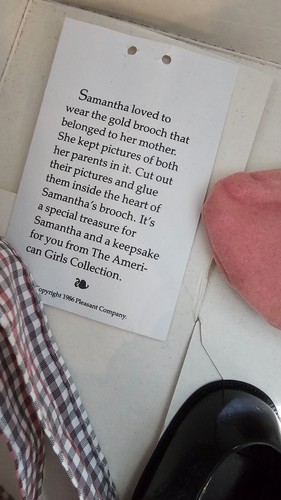 Samantha loved to
wear the gold brooch that
belonged to her mother.
She kept pictures of both
her parents in it. Cut out
their pictures and glue
them inside the heart of
Samantha's brooch. It's
a special treasure for
Samantha and a keepsake
for you from The Ameri-
can Girls Collection.
Copyright 1986 Pleasant Company.